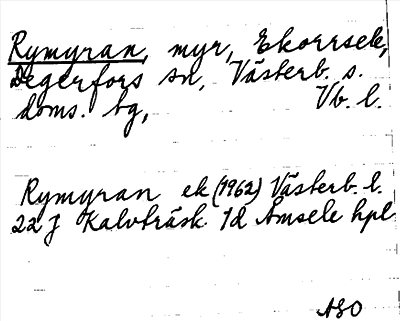 Rymyran, myr, Ekorrsele,
Degerfors sn, Västerb. s.
doms. bg, Vb. l.
Rymyran ek (1962) Västerb. l.
22 J Kalvträsk 1d Åmsele hpl
ASO